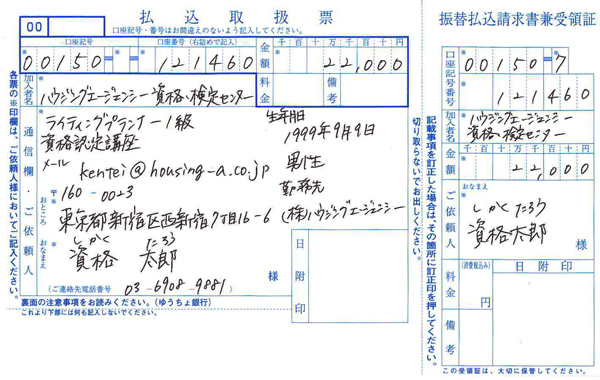 00
払込取扱票
口座記号・番号はお間違えのないよう記入してください。
口座記号
口座番号(右詰めで記入)
00150-7
121460
金額
千百十万千百十円
22,000
加入者名
ハウジングエージェンシー 資格・検定センター
料金
備考
各票の※印欄は、ご依頼人様においてご記入ください。
通信欄・ご依頼人
ライティングプランナー1級
資格認定講座
メール
kentei@housing-a.co.jp
生年月日
1999年9月9日
男性
勤務先
(株)ハウジングエージェンシー
おところ
〒160-0023
東京都新宿区西新宿7丁目16-6
おなまえ
しかく たろう
資格 太郎
様
(ご連絡先電話番号 03-6908-9881)
日附印
裏面の注意事項をお読みください。(ゆうちょ銀行)
これより下部には何も記入しないでください。
切り取らないでお出しください。
記載事項を訂正した場合は、その箇所に訂正印を押してください。
振替払込請求書兼受領証
口座記号番号
00150-7
121460
加入者名
ハウジングエージェンシー
資格・検定センター
金額
千百十万千百十円
22,000
ご依頼人
おなまえ
しかくたろう
資格太郎
様
料金
(消費税込み)
円
日附印
備考
この受領証は、大切に保管してください。